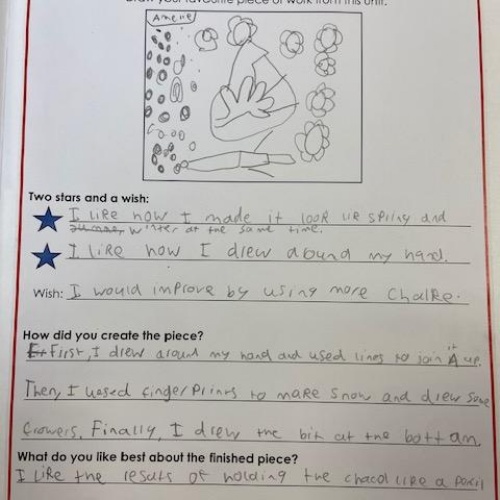 Draw your favourite piece of work from this unit.
Amelie
Two stars and a wish:
I like how I made it look lik spring and
summer winter at the same time.
I like how I drew abund my hand.
Wish: I would improve by using more chalke.
How did you create the piece?
First, I drew around my hand and used lines to join it up.
Then, I uased fingerprints to make snow and drew some
flowers. Finally, I drew the bit at the bottam.
What do you like best about the finished piece?
I like the resuts of holding the chacol like a pencil